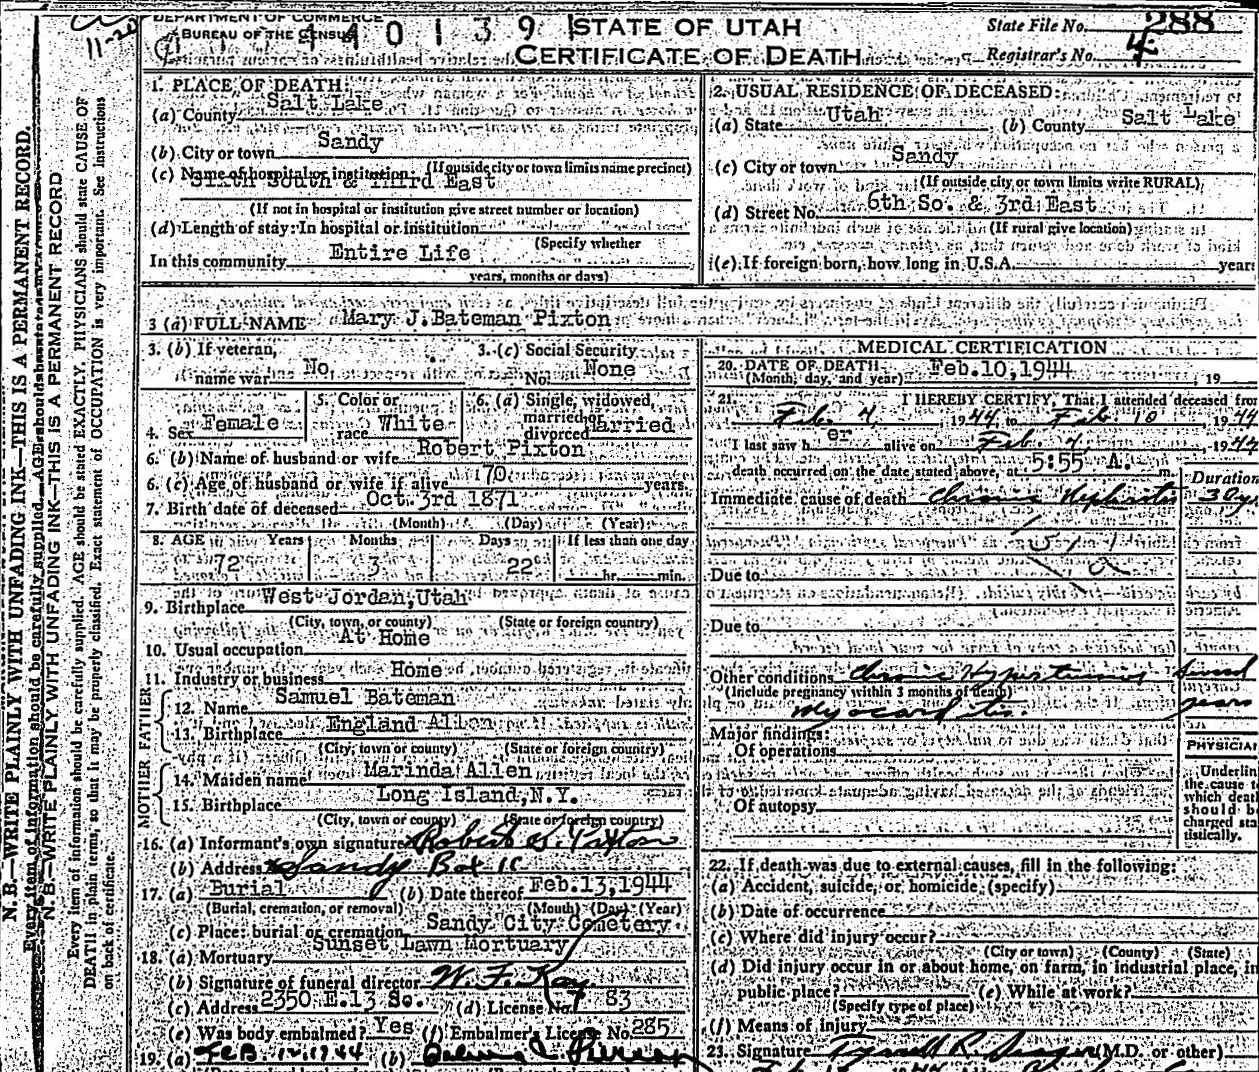 DEPARTMENT OF COMMERCE
BUREAU OF THE CENSUS
440139
STATE OF UTAH
CERTIFICATE OF DEATH
State File No. 288
Registrar's No. 4
11-20
N. B.—WRITE PLAINLY WITH UNFADING INK—THIS IS A PERMANENT RECORD.
Every item of information should be carefully supplied. AGE should be stated
N. B.—WRITE PLAINLY WITH UNFADING INK—THIS IS A PERMANENT RECORD
Every item of information should be carefully supplied. AGE should be stated EXACTLY. PHYSICIANS should state CAUSE OF
DEATH in plain terms, so that it may be properly classified. Exact statement of OCCUPATION is very important. See instructions
on back of certificate.
1. PLACE OF DEATH:
(a) County Salt Lake
(b) City or town Sandy
(If outside city or town limits name precinct)
(c) Name of hospital or institution:
Sixth South & Third East
(If not in hospital or institution give street number or location)
(d) Length of stay: In hospital or institution
(Specify whether
In this community Entire Life
years, months or days)
2. USUAL RESIDENCE OF DECEASED:
(a) State Utah (b) County Salt Lake
(c) City or town Sandy
(If outside city or town limits write RURAL)
(d) Street No. 6th So. & 3rd East
(If rural give location)
(e) If foreign born, how long in U.S.A. years
3 (a) FULL NAME Mary J.Bateman Pixton
3. (b) If veteran, name war No
3. (c) Social Security No. None
4. Sex Female
5. Color or race White
6. (a) Single, widowed, married or divorced Married
6. (b) Name of husband or wife Robert Pixton
6. (c) Age of husband or wife if alive 70 years.
7. Birth date of deceased Oct.3rd 1871
(Month) (Day) (Year)
8. AGE Years Months Days If less than one day
72 3 22 hr. min.
9. Birthplace West Jordan,Utah
(City, town, or county) (State or foreign country)
10. Usual occupation At Home
11. Industry or business Home
FATHER
12. Name Samuel Bateman
13. Birthplace England Allen
(City, town or county) (State or foreign country)
MOTHER
14. Maiden name Marinda Allen
15. Birthplace Long Island,N.Y.
(City, town or county) (State or foreign country)
16. (a) Informant's own signature Robert S. Pixton
(b) Address Sandy Box 1C
17. (a) Burial (b) Date thereof Feb.13,1944
(Burial, cremation, or removal) (Month) (Day) (Year)
(c) Place: burial or cremation Sandy City Cemetery.
18. (a) Mortuary Sunset Lawn Mortuary
(b) Signature of funeral director W. F. Kay
(c) Address 2350 E.13 So. (d) License No. 83
(e) Was body embalmed? Yes (f) Embalmer's License No. 285
19. (a) FEB. 12 1944 (b)
MEDICAL CERTIFICATION
20. DATE OF DEATH Feb.10,1944
(Month, day, and year) , 19
21. I HEREBY CERTIFY, That I attended deceased from
Feb. 7, 1944, to Feb. 10, 1944
I last saw h er alive on Feb. 7, 1944
death occurred on the date stated above, at 5:55 A. m.
Duration
Immediate cause of death Chronic Nephritis 3 0 yrs
131
a
Due to
Due to
Other conditions Chronic Hypertensive
(Include pregnancy within 3 months of death)
Myocarditis. years
Major findings:
Of operations
Of autopsy
PHYSICIAN
Underline
the cause to
which death
should be
charged sta-
tistically.
22. If death was due to external causes, fill in the following:
(a) Accident, suicide, or homicide (specify)
(b) Date of occurrence
(c) Where did injury occur?
(City or town) (County) (State)
(d) Did injury occur in or about home, on farm, in industrial place, in
public place? (e) While at work?
(Specify type of place)
(f) Means of injury
23. Signature Tyrrell R. Seager (M.D. or other)